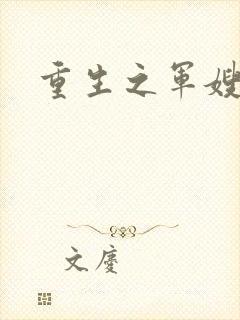 重生之军嫂
文慶